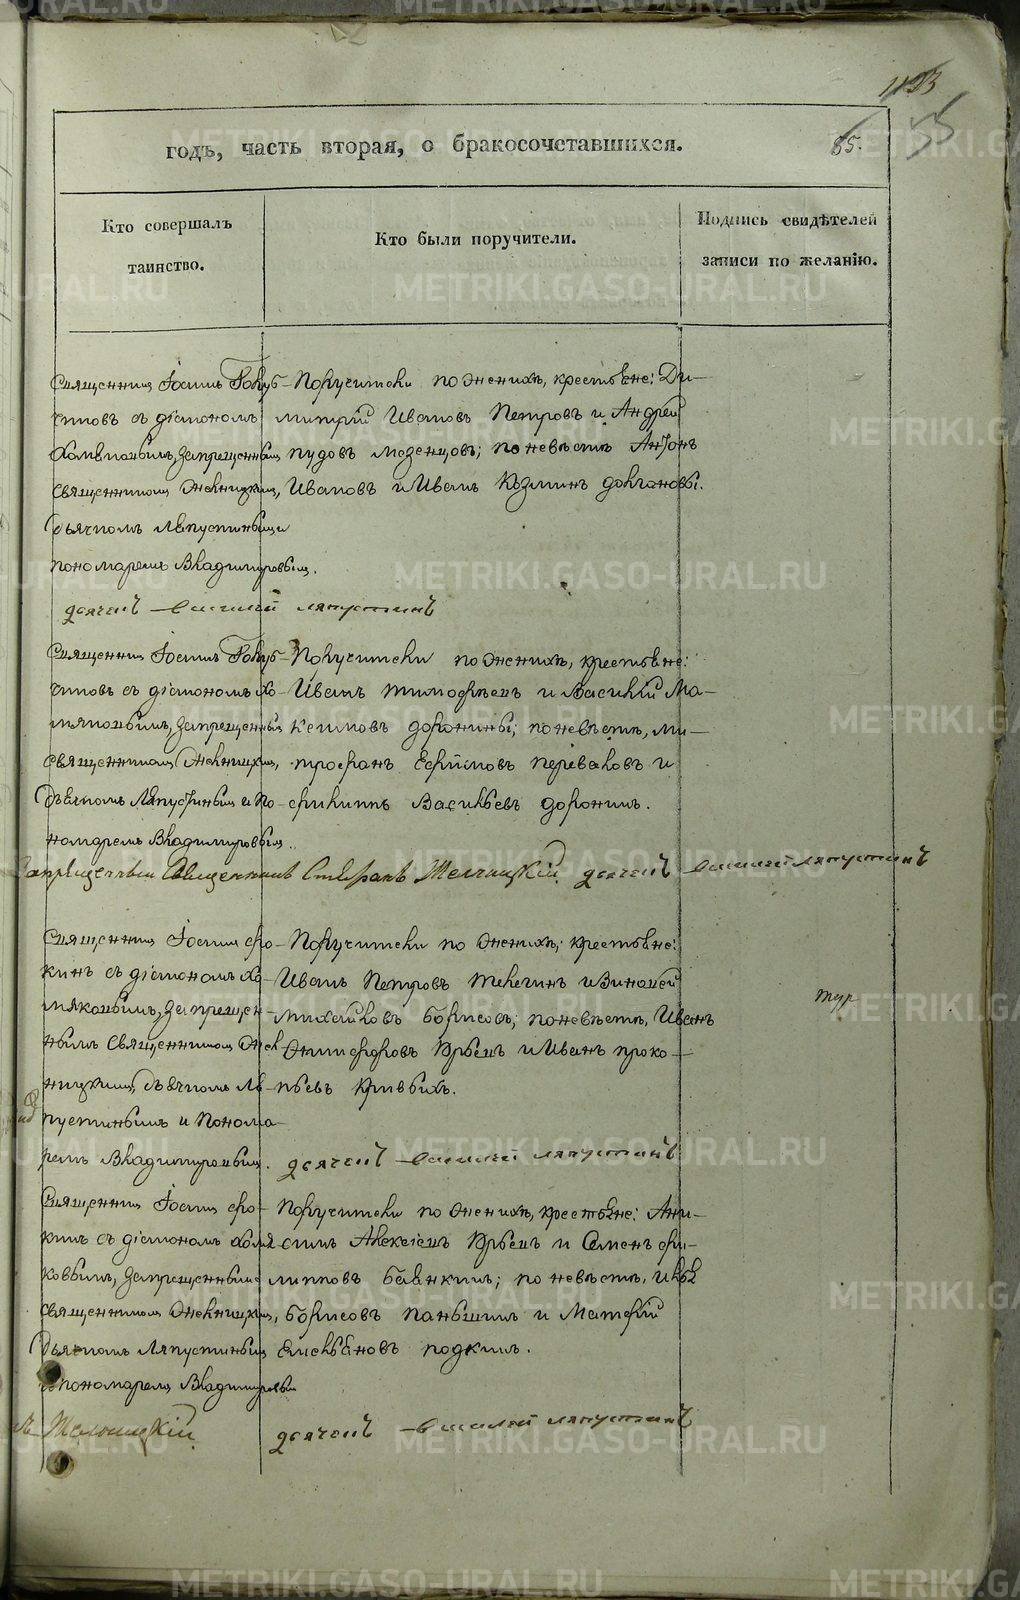 1123
55
годъ, часть вторая, о бракосочетавшихся.
85.
Кто совершалъ таинство.
Кто были поручители.
Подпись свидѣтелей записи по желанію.
Священникъ Іоаннъ Голуб-
чиковъ съ діакономъ
Хомяковымъ, запрещеннымъ
священникомъ
Дьячкомъ Ляпустинымъ и
пономаремъ Владимировымъ.
Поручители по женихѣ, крестьяне: Ди-
митрій Ивановъ Петровъ и Андрей
Пудовъ Мезенцовъ; по невѣстѣ Антонъ
Ивановъ и Иванъ Козминъ
дьячекъ Василей Ляпустинъ
Священникъ Іоаннъ Голуб-
чиковъ съ діакономъ Хо-
мяковымъ, запрещеннымъ
священникомъ
Дьячкомъ Ляпустинымъ и по-
номаремъ Владимировымъ.
Поручители по женихѣ, крестьяне:
Иванъ Тимофѣевъ и Василій Ма-
ксимовъ Доронины; по невѣстѣ, Ми-
трофанъ Ефимовъ Переваловъ и
Филиппъ Васильевъ Доронинъ.
Запрещенный Священникъ Стефанъ дьячекъ Василей Ляпустинъ
Священникъ Іоаннъ Фо-
кинъ съ діакономъ Хо-
мяковымъ, запрещен-
нымъ священникомъ
дьячкомъ Ля-
пустинымъ и понома-
ремъ Владимировымъ.
Поручители по женихѣ, крестьяне:
Иванъ Петровъ Телегинъ и
Михайловъ Борисовъ; по невѣстѣ, Иванъ
Юрьевъ и Иванъ Проко-
пьевъ Кривыхъ.
дьячекъ Василей Ляпустинъ
Священникъ Іоаннъ Фо-
кинъ съ діакономъ Хомя-
ковымъ, запрещеннымъ
священникомъ
Дьячкомъ Ляпустинымъ
и пономаремъ Владимировымъ
Поручители по женихѣ, крестьяне: Ани-
симъ Алексѣевъ Юрьевъ и Семенъ Фи-
липповъ Белянкинъ; по невѣстѣ, Илья
Борисовъ Паньшинъ и Матвѣй
Емельяновъ
дьячекъ Василей Ляпустинъ
METRIKI.GASO-URAL.RU